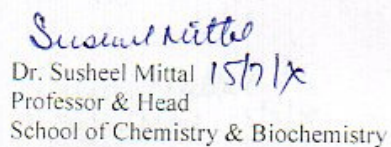 Susheel Mittal
Dr. Susheel Mittal 15/7/
Professor & Head
School of Chemistry & Biochemistry